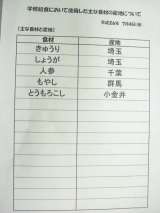 学校給食において使用した主な食材の産地について
平成26年 7月4日(金)
(主な食材と産地)
食材 産地
きゅうり 埼玉
しょうが 埼玉
人参 千葉
もやし 群馬
とうもろこし 小金井